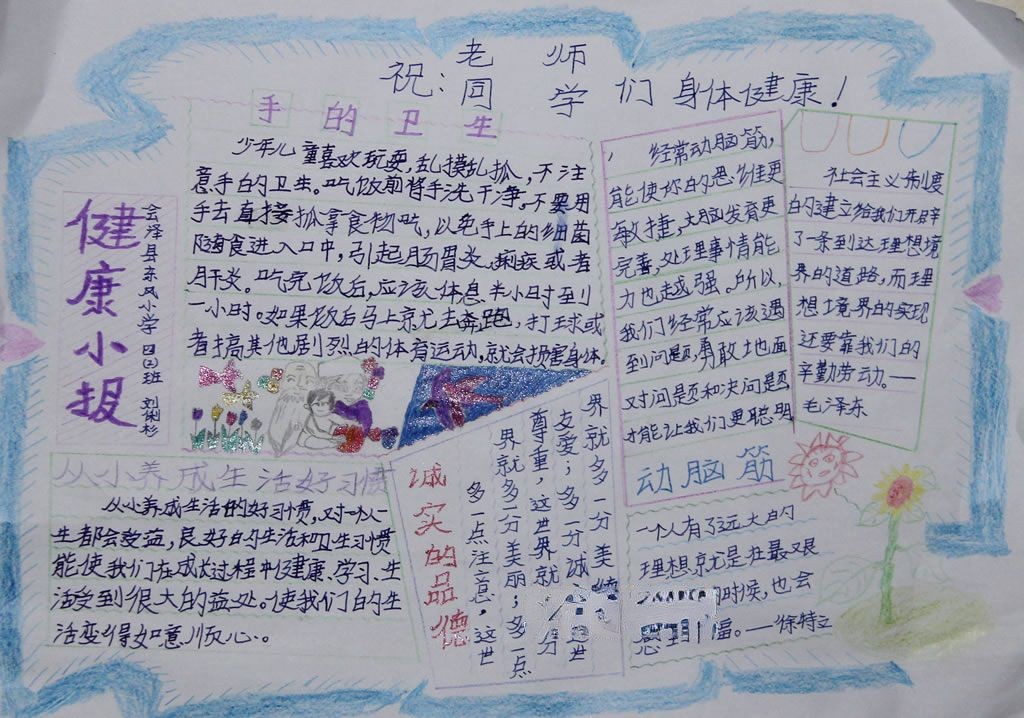 祝：老师
同学们身体健康！
健康小报
会泽县东风小学四(2)班 刘俐杉
手的卫生
少年儿童喜欢玩耍，乱摸乱抓，不注
意手的卫生。吃饭前皆手洗干净。不要用
手去直接抓拿食物吃，以免手上的细菌
随食进入口中，引起肠胃炎、痢疾或者
肝炎。吃完饭后，应该休息半小时到
一小时。如果饭后马上就去奔跑，打球或
者搞其他剧烈的体育运动，就会损害身体。
从小养成生活好习惯
从小养成生活的好习惯，对一个人一
生都会受益，良好的生活和卫生习惯
能使我们在成长过程中健康、学习、生
活受到很大的益处。使我们的生
活变得如意顺心。
诚实的品德
多一点注意，这世
界就多一分美丽；多一点
尊重，这世界就
友爱；多一分诚
界就多一分美
经常动脑筋，
能使你的思维更
敏捷，大脑发育更
完善，处理事情能
力也越强。所以，
我们经常应该遇
到问题，勇敢地面
对问题和决问题
才能让我们更聪明
动脑筋
社会主义制度
的建立给我们开辟
了一条到达理想境
界的道路，而理
想境界的实现
还要靠我们的
辛勤劳动。——
毛泽东
一个人有了远大的
理想就是在最艰
的时候，也会
感到幸福。——徐特立